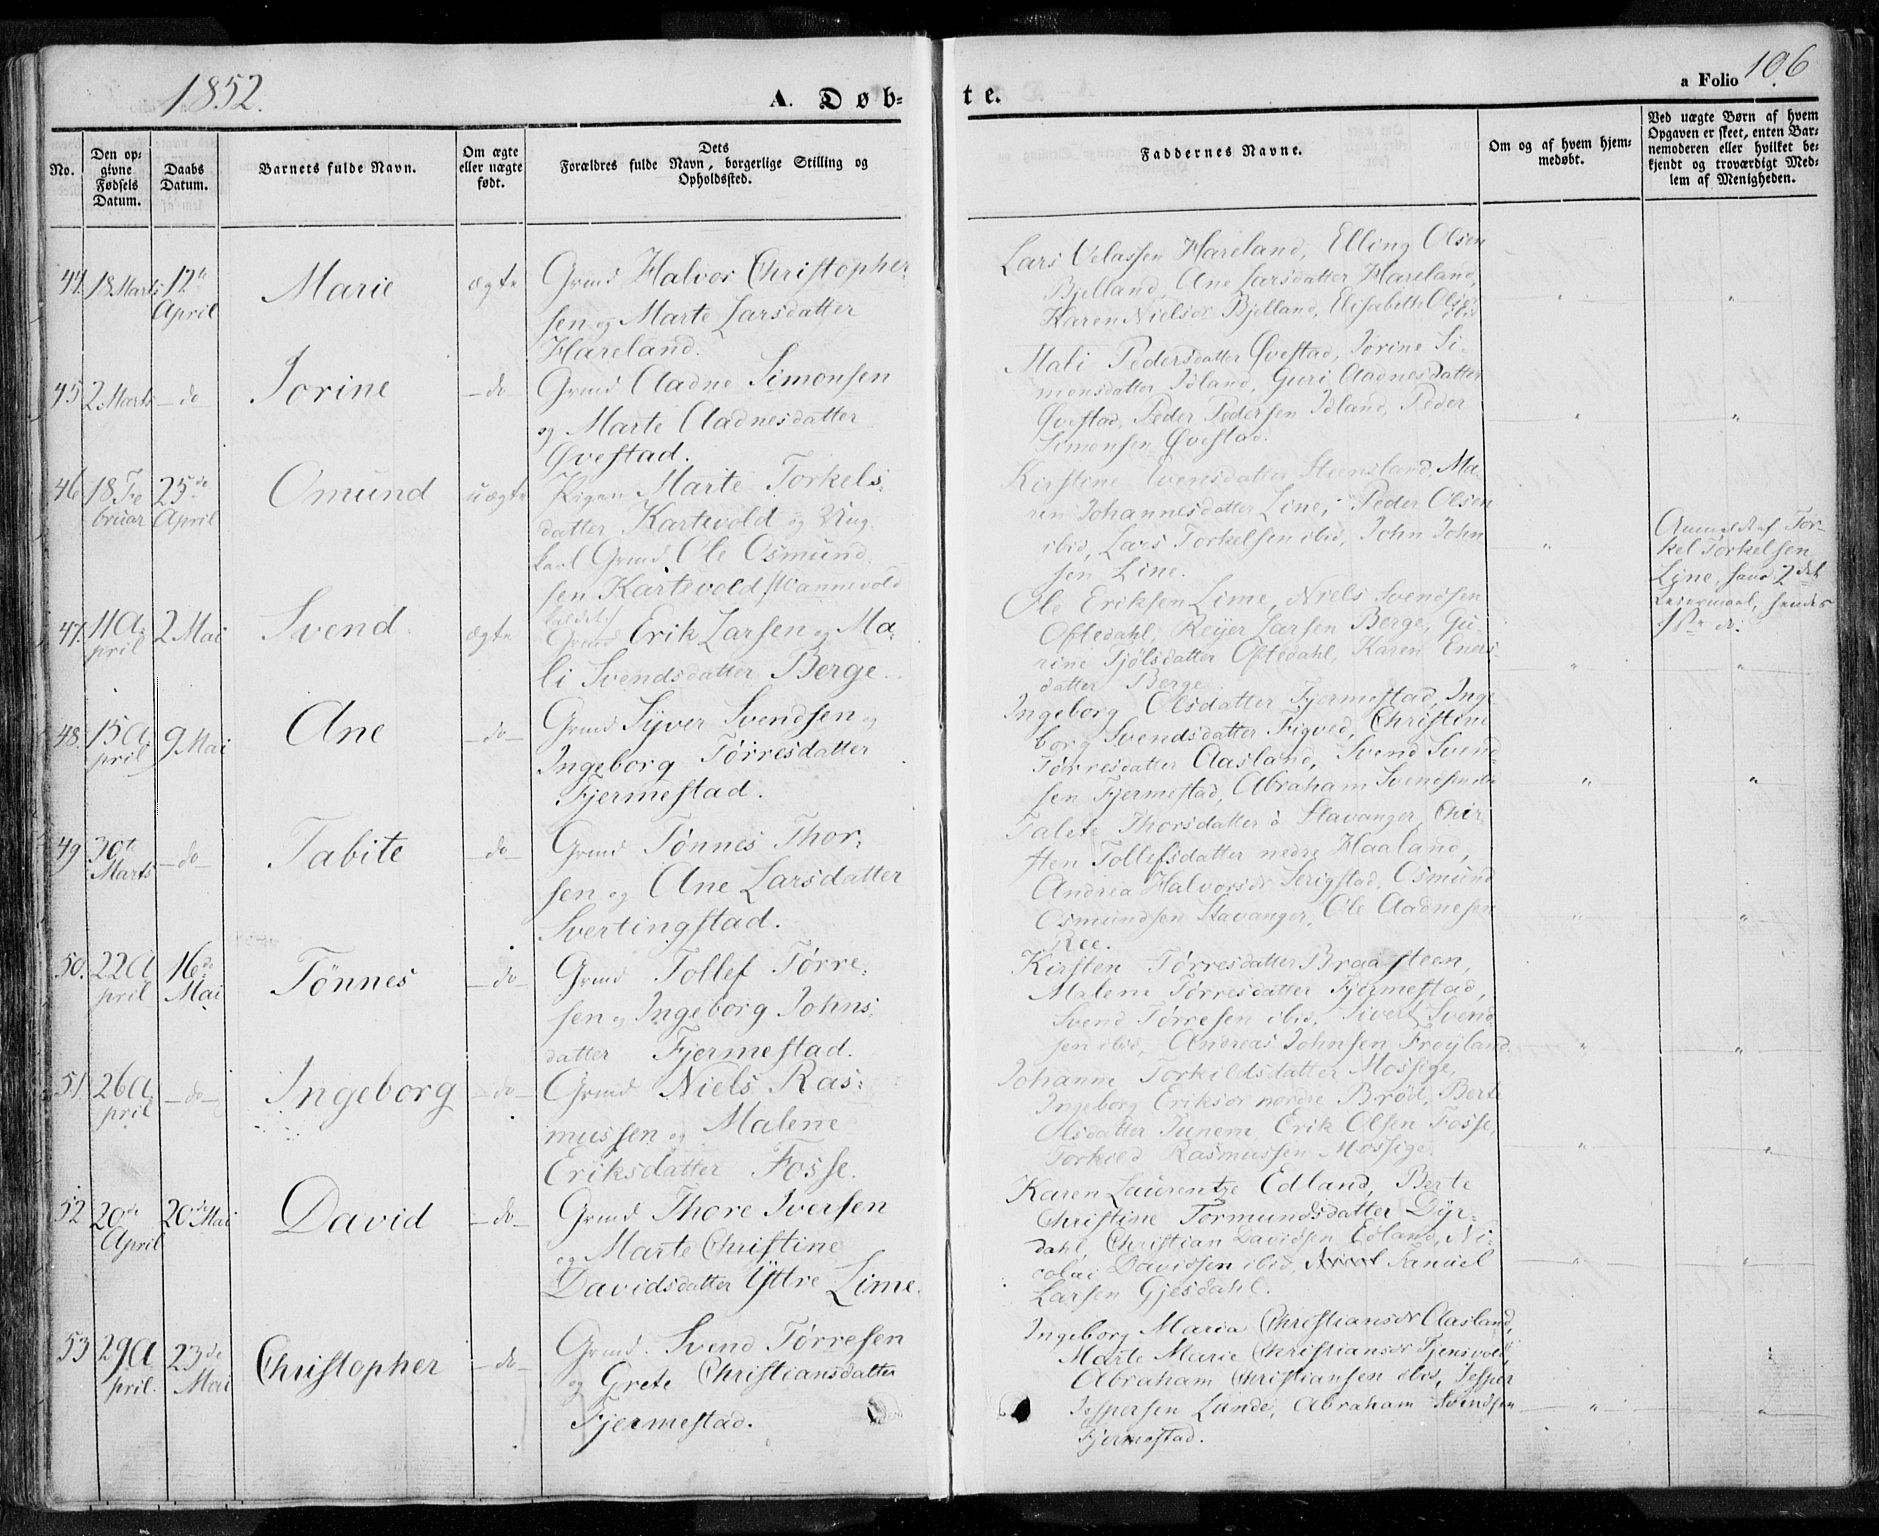 1852.
A. Døb-
te.
a Folio 106
No.
Den op-
givne
Fødsels
Datum.
Daabs
Datum.
Barnets fulde Navn.
Om ægte
eller uægte
født.
Dets
Forældres fulde Navn, borgerlige Stilling og
Opholdssted.
Faddernes Navne.
Om og af hvem hjem-
medøbt.
Ved uægte Børn af hvem
Opgaven er skeet, enten Bar-
nemoderen eller hvilket be-
kjendt og troværdigt Med-
lem af Menigheden.
44. 18 Marts 12te
April
Marie
ægte
Grmd Halvor Christopher-
sen og Marte Larsdatter
Hareland.
Lars Velassen Hareland, Elling Olsen
Bjelland, Ane Larsdatter Hareland,
Karen Nielsdr Bjelland, Elisabeth Olsdr
ibid
45 2 Marts - do
Jorine
- do -
Grmd Aadne Simonsen
og Marte Aadnesdatter
Øvestad.
Mali Pedersdatter Øvestad, Jorine Si-
monsdatter Idland, Guri Aadnesdatter
Øvestad, Peder Pedersen Idland, Peder
Simonsen Øvestad.
46 18 Fe
bruar
25de
April
Omund
uægte
Pigen Marte Torkels-
datter Kartevold og Ung-
karl Grmd. Ole Osmund-
sen Kartevold
kaldet
Kirstine Svensdatter Steensland, Ma-
ren Johannesdatter Line, Peder Olsen
ibid, Lars Torkelsen ibid, John John
sen Line.
Anmeldt af Tor-
kel Torkelsen
Line, hans 2det
Leiermaal, hendes
1ste do.
47. 11 A-
pril
2 Mai
Svend.
ægte
Grmd Erik Larsen og Ma-
li Svendsdatter Berge.
Ole Eriksen Lime, Niels Svendsen
Oftedahl, Reijer Larsen Berge, Gu-
rine Tjølsdatter Oftedahl, Karen Eners
datter Berge
48. 15 A
pril
9 Mai
Ane
- do -
Grmd Syver Svendsen og
Ingeborg Tørresdatter
Fjermestad.
Ingeborg Olsdatter Fjermestad, Inge
borg Svendsdatter Figved, Christine
Tørresdatter Aasland, Svend Svend-
sen Fjermestad, Abraham Svendsen ibi
49 30te
Marts
- do -
Tabite
- do -
Grmd Tønnes Thor-
sen og Ane Larsdatter
Svertingstad.
Talete Thorsdatter i Stavanger, Chir-
sten Tollefsdatter nedre Haaland,
Andrea Halvorsdr Serigstad, Osmund
Osmundsen Stavanger, Ole Aadnesen
Ree.
50. 22 A
pril
16de
Mai
Tønnes
- do -
Grmd Tollef Tørre-
sen og Ingeborg Johns-
datter Fjermestad.
Kirsten Tørresdatter Braasteen,
Malene Tørresdatter Fjermestad,
Svend Tørresen ibid, Sivert Svend
sen ibid, Andreas Johnsen Frøyland
51. 26 A
pril
- do -
Ingeborg
- do -
Grmd Niels Ras-
mussen og Malene
Eriksdatter Fosse.
Johanne Torkildsdatter Mossige,
Ingeborg Eriksdr nordre Brød, Berte
Olsdatter Tunem, Erik Olsen Fosse,
Torkild Rasmussen Mossige.
52 20de
April
20de Mai
David
- do -
Grmd Thore Iversen
og Marte Christine
Davidsdatter Yttre Lime.
Karen Laurentze Edland, Berte
Christine Tormundsdatter Dyr-
dahl, Christian Davidsen Edland, Ni-
colai Davidsen ibid, Samuel
Larsen Gjesdahl.
53 29 A
pril.
23de
Mai
Christopher
- do -
Grmd. Svend Tørresen
og Grete Christiansdatter
Fjermestad.
Ingeborg Maria Christiansdr Aasland,
Marte Marie Christiansdr Tjensvold,
Abraham Christiansen ibid, Jesper
Jespersen Lunde, Abraham Svendsen
Fjermestad.